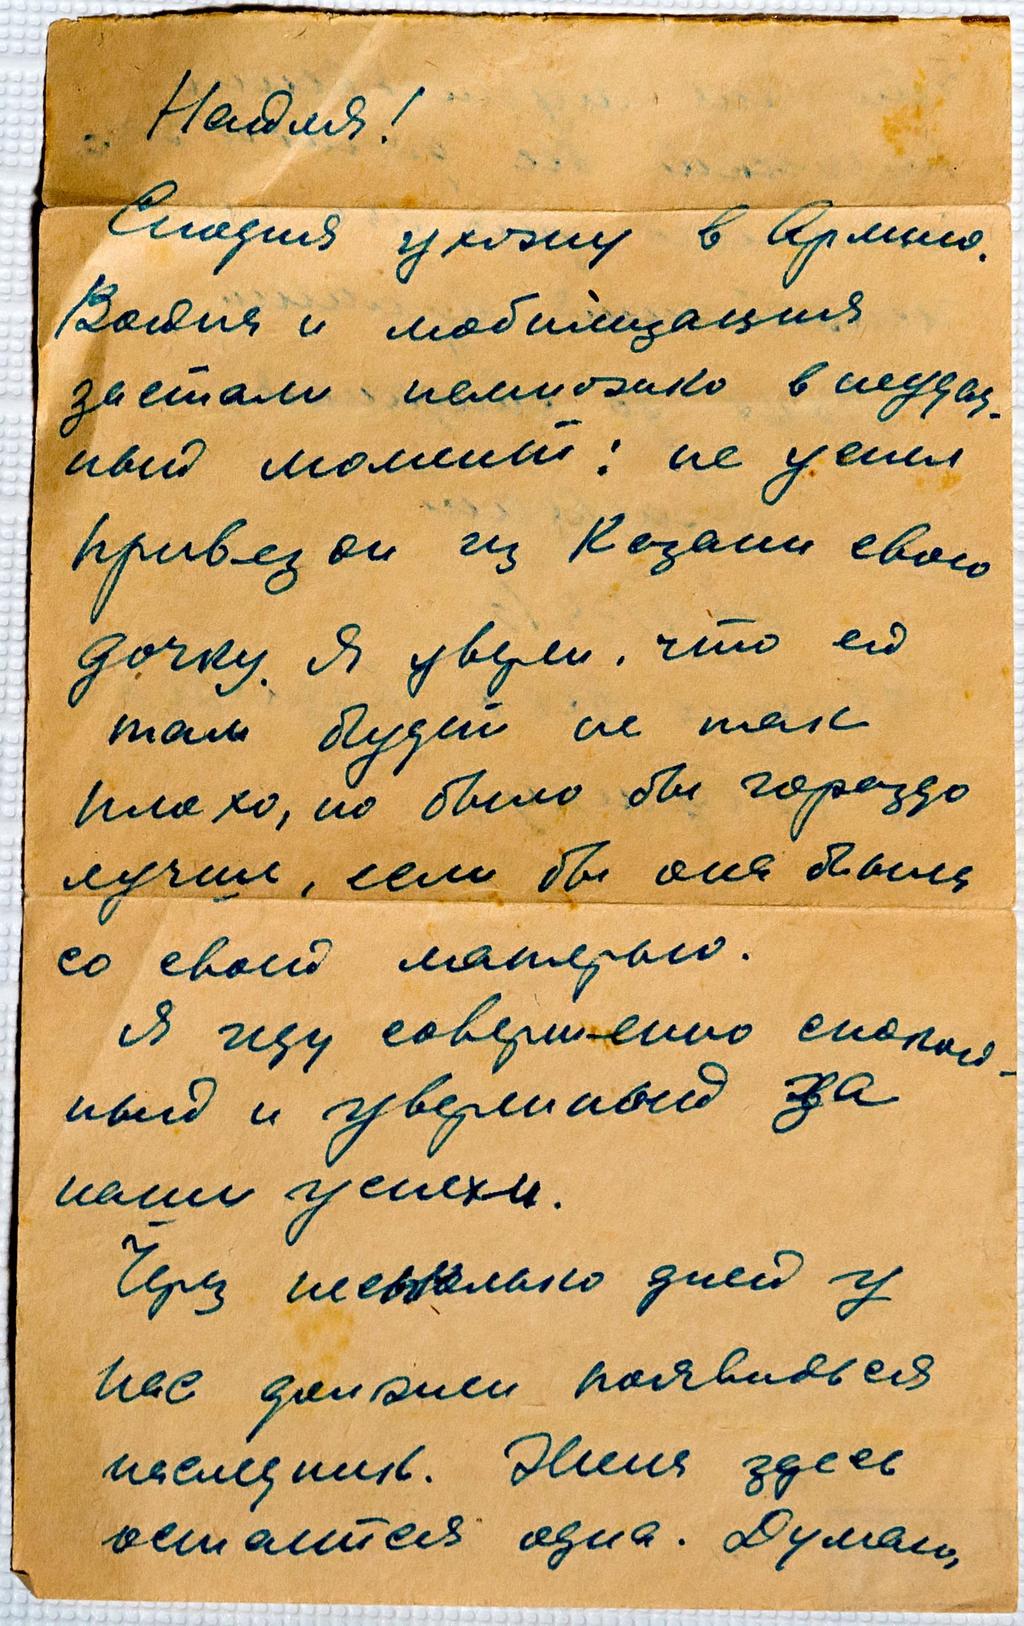 Надля!
Сегодня ухожу в Армию.
Война и мобилизация
застали немножко в неудач-
ный момент: не успел
привезти из Казани свою
дочку. Я уверен, что ей
там будет не так
плохо, но было бы гораздо
лучше, если бы она была
со своей матерью.
Я иду совершенно спокой-
ный и уверенный за
наши успехи.
Через несколько дней у
нас должен появиться
наследник. Женя здесь
останется одна. Думаю,